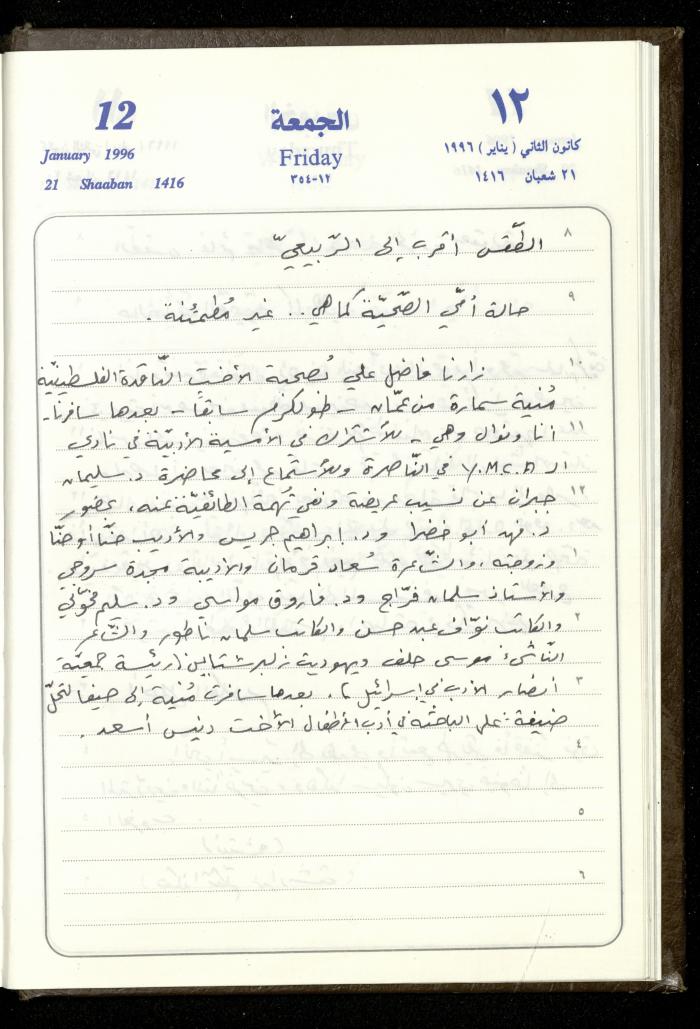 12
January 1996
21 Shaaban 1416
الجمعة
Friday
١٢-٣٥٤
١٢
كانون الثاني ( يناير ) ١٩٩٦
٢١ شعبان ١٤١٦
٨ الطّقس أقرب إلى الرّبيعيّ
٩ حالة أمّي الصّحيّة كما هي .. غير مُطمئنة .
١٠ زارنا فاضل علي بُصحبة الأخت النّاقدة الفلسطينيّة
مُنية سمارة من عمّان - طولكرم سابقًا - بعدها سافرنا -
١١ أنا ونوال وهي - للأشتراك في الأمسية الأدبيّة في نادي
الـ Y.M.C.A في النّاصرة وللأستماع إلى محاضرة د. سليمان
١٢ جبران عن نسيب عريضة ونفي تُهمة الطائفيّة عنه، بحضور
د. فهد أبو خضرا ود. إبراهيم حريس والأديب حنّا أبو حنّا
١ وزوجته، والشّاعرة سُعاد قرمان والأديبة مجدة سروجي
والأستاذ سلمان فرّاج ود. فاروق مواسي ود. سليم مخّولي
٢ والكاتب نوّاف عبد حسن والكاتب سلمان ناطور والشّاعر
النّاشئ موسى حلف ويهوديت زلبرشتاين (رئيسة جمعيّة
٣ أنصار الأدب في إسرائيل) . بعدها سافرت مُنية إلى حيفا لتحلّ
ضيفة على الباحثة في أدب الأطفال الأخت دنيس أسعد .
٤
٥
٦